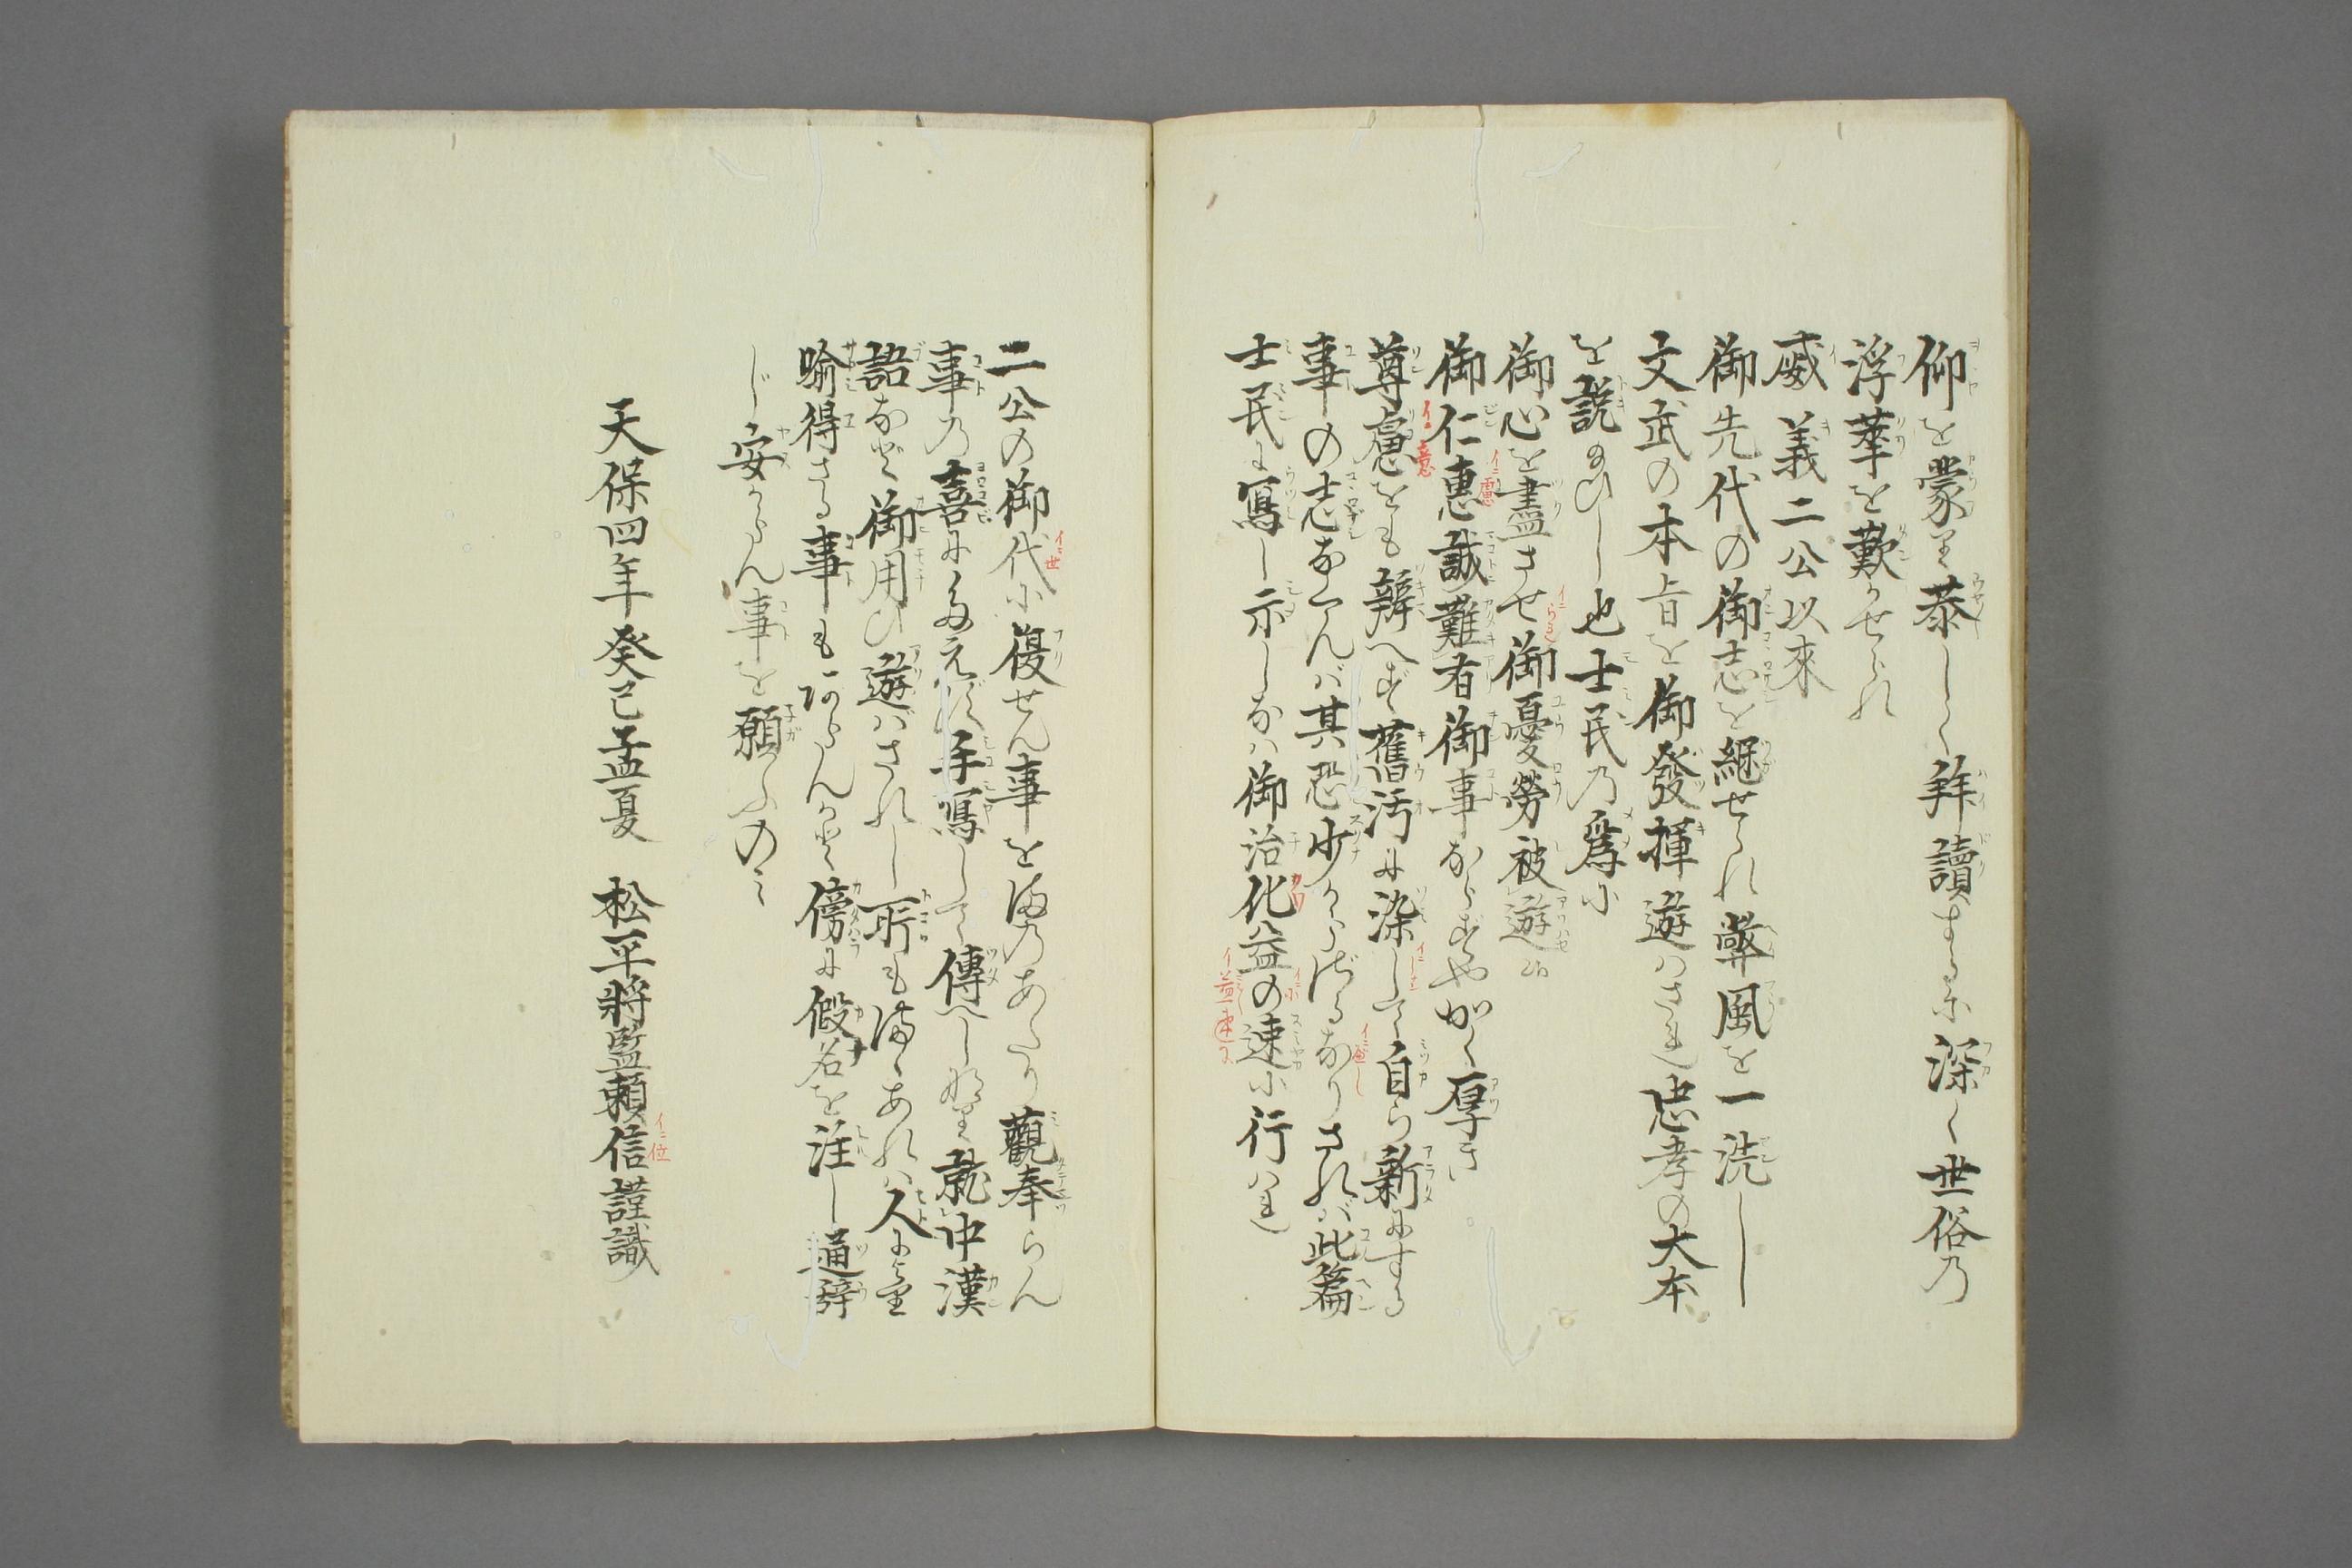 仰を蒙り恭しく拜讀するに深く世俗の
浮華を歎かせられ
威 義二公以來
御先代の御志を継せられ弊風を一洗し
文武の本旨を御發揮遊ハされ忠孝の大本
を説のひし也士民の爲に
御心を盡させ御憂勞被遊候
御仁惠誠難有御事ならずやかく厚き
尊慮をも辨へず舊汚に染して自ら新にする
事の志なくんバ其恐少からざるなりされバ此篇
士民に寫し示しなハ御治化益の速に行ハれ
二公の御代に復せん事をまのあたり觀奉らん
事の喜にたえず手寫して傳へし也就中漢
語など御用ひ遊バされし所もまゝあれハ人により
喩得さる事もあらんかと傍に假名を注し通辞
じ安からん事を願ふのミ
天保四年癸巳孟夏 松平將監頼信謹識